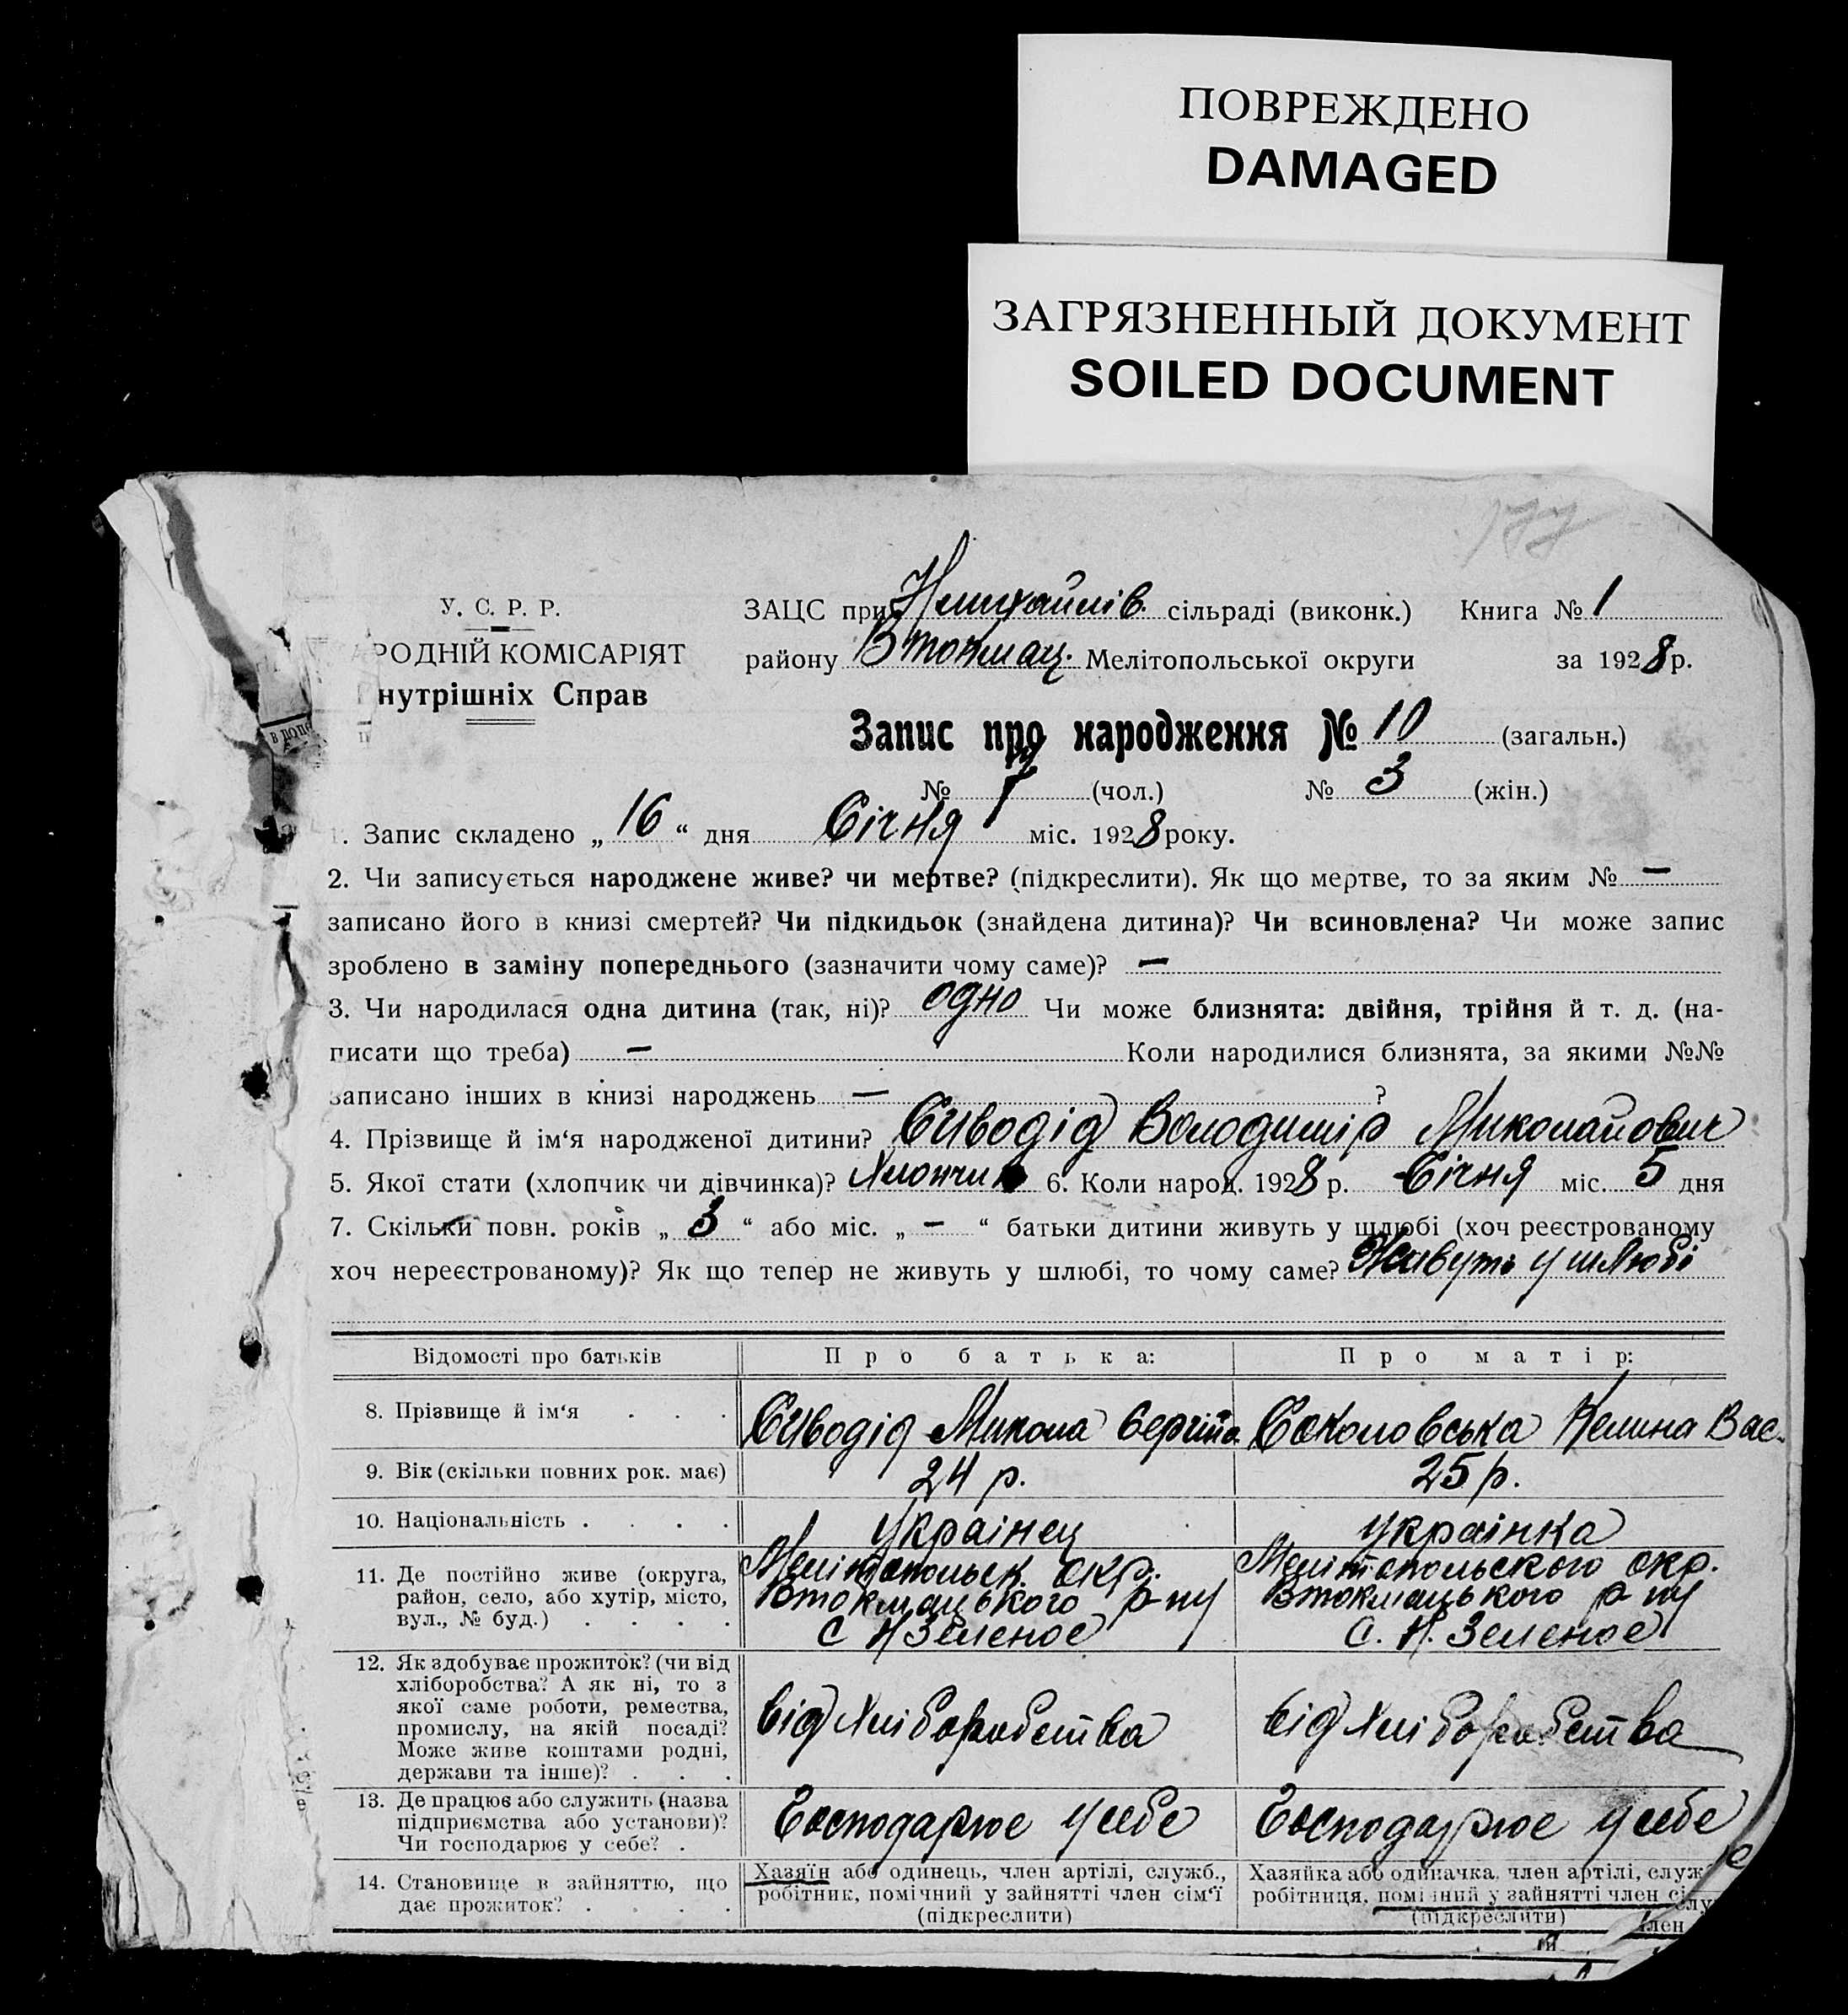 ПОВРЕЖДЕНО
DAMAGED
ЗАГРЯЗНЕННЫЙ ДОКУМЕНТ
SOILED DOCUMENT
177
У. С. Р. Р.
РОДНІЙ КОМІСАРІЯТ
нутрішніх Справ
ЗАЦС при Н михайлів. сільраді (виконк.) Книга № 1
району Втокмац. Мелітопольської округи за 1928 р.
Запис про народження № 10 (загальн.)
№ 7 (чол.) № 3 (жін.)
1. Запис складено „ 16 “ дня Січня міс. 1928 року.
2. Чи записується народжене живе? чи мертве? (підкреслити). Як що мертве, то за яким № —
записано його в книзі смертей? Чи підкидьок (знайдена дитина)? Чи всиновлена? Чи може запис
зроблено в заміну попереднього (зазначити чому саме)? —
3. Чи народилася одна дитина (так, ні)? одно Чи може близнята: двійня, трійня й т. д. (на-
писати що треба) — Коли народилися близнята, за якими №№
записано інших в книзі народжень — ?
4. Прізвище й ім‘я народженої дитини? Сиводід Володимір Миколайович
5. Якої стати (хлопчик чи дівчинка)? Хлопчик 6. Коли народ. 1928 р. Січня міс. 5 дня
7. Скільки повн. років „ 3 “ або міс. „ — “ батьки дитини живуть у шлюбі (хоч реєстрованому
хоч нереєстрованому)? Як що тепер не живуть у шлюбі, то чому саме? Живуть у шлюбі
Відомості про батьків Про батька: Про матір:
8. Прізвище й ім‘я . . . Сиводід Микола Сергійо. Соколовська Келина Вас.
9. Вік (скільки повних рок. має) 24 р. 25 р.
10. Національність . . . . Украінец украінка
11. Де постійно живе (округа,
район, село, або хутір, місто,
вул., № буд.) . . . .
Мелітопольск. окр.
Втокмацького р-ну
с Н Зеленое
Мелітопольского окр.
Втокмацького р ну
С. Н. Зеленое
12. Як здобуває прожиток? (чи від
хліборобства? А як ні, то з
якої саме роботи, ремества,
промислу, на якій посаді?
Може живе коштами родні,
держави та інше)? . . .
від Хліборобства
від Хліборобства
13. Де працює або служить (назва
підприємства або установи)?
Чи господарює у себе? .
Господарює у себе
Господарює у себе
14. Становище в зайняттю, що
дає прожиток? . . . .
Хазяїн або одинець, член артілі, служб.,
робітник, помічний у зайнятті член сім‘ї
(підкреслити)
Хазяйка або одиначка, член артілі, служ
робітниця, помічний у зайнятті член сі
(підкреслити)